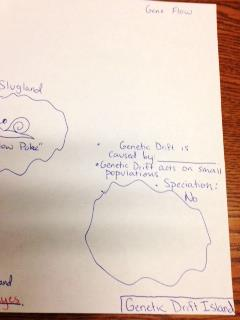 Gene Flow
Slugland
ow Poke"
• Genetic Drift is
caused by
• Genetic Drift acts on small
populations
• Speciation:
No
and
yes.
Genetic Drift Island